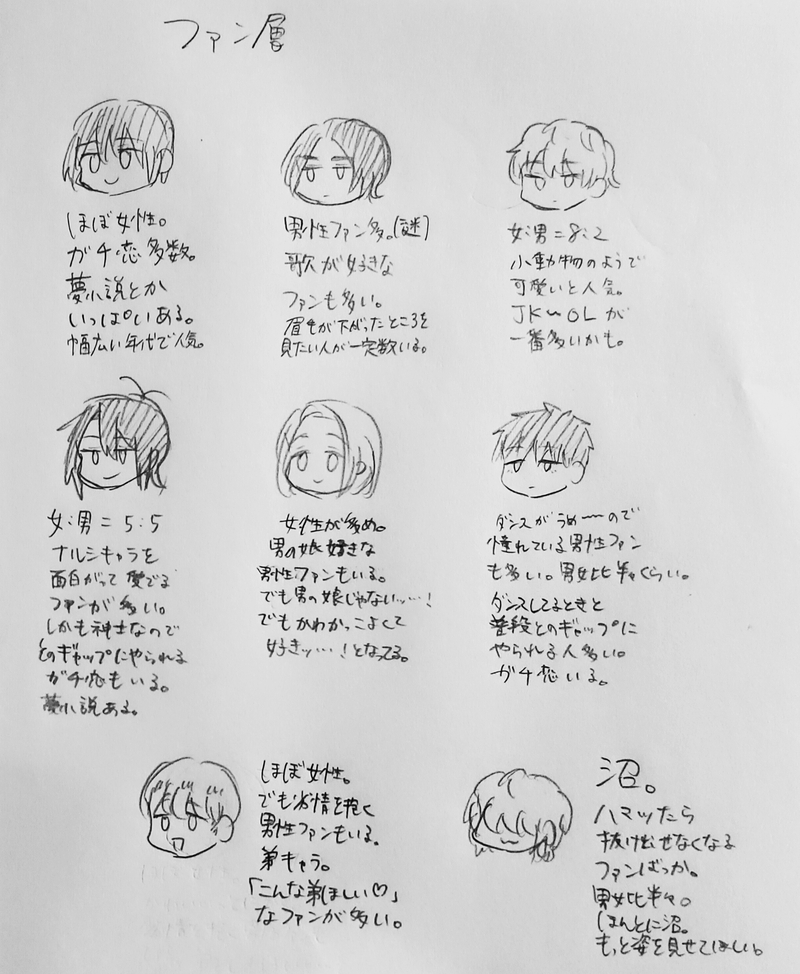 ファン層
ほぼ女性。
ガチ恋多数。
夢小説とか
いっぱいある。
幅広い年代で人気。
男性ファン多。(謎)
歌が好きな
ファンも多い。
眉毛が下がったところを
見たい人が一定数いる。
女:男=8:2
小動物のようで
可愛いと人気。
JK〜OLが
一番多いかも。
女:男=5:5
ナルシキャラを
面白がって愛でる
ファンが多い。
しかも紳士なので
そのギャップにやられる
ガチ恋もいる。
夢小説ある。
女性が多め。
男の娘好きな
男性ファンもいる。
でも男の娘じゃないッ…!
でもかわかっこよくて
好きッ…!となってる。
ダンスがうめ〜ので
憧れている男性ファン
も多い。男女比半々くらい。
ダンスしてるときと
普段とのギャップに
やられる人多い。
ガチ恋いる。
ほぼ女性。
でも劣情を抱く
男性ファンもいる。
弟キャラ。
「こんな弟ほしい♡」
なファンが多い。
沼。
ハマッたら
抜け出せなくなる
ファンばっか。
男女比半々。
ほんとに沼。
もっと姿を見せてほしい。